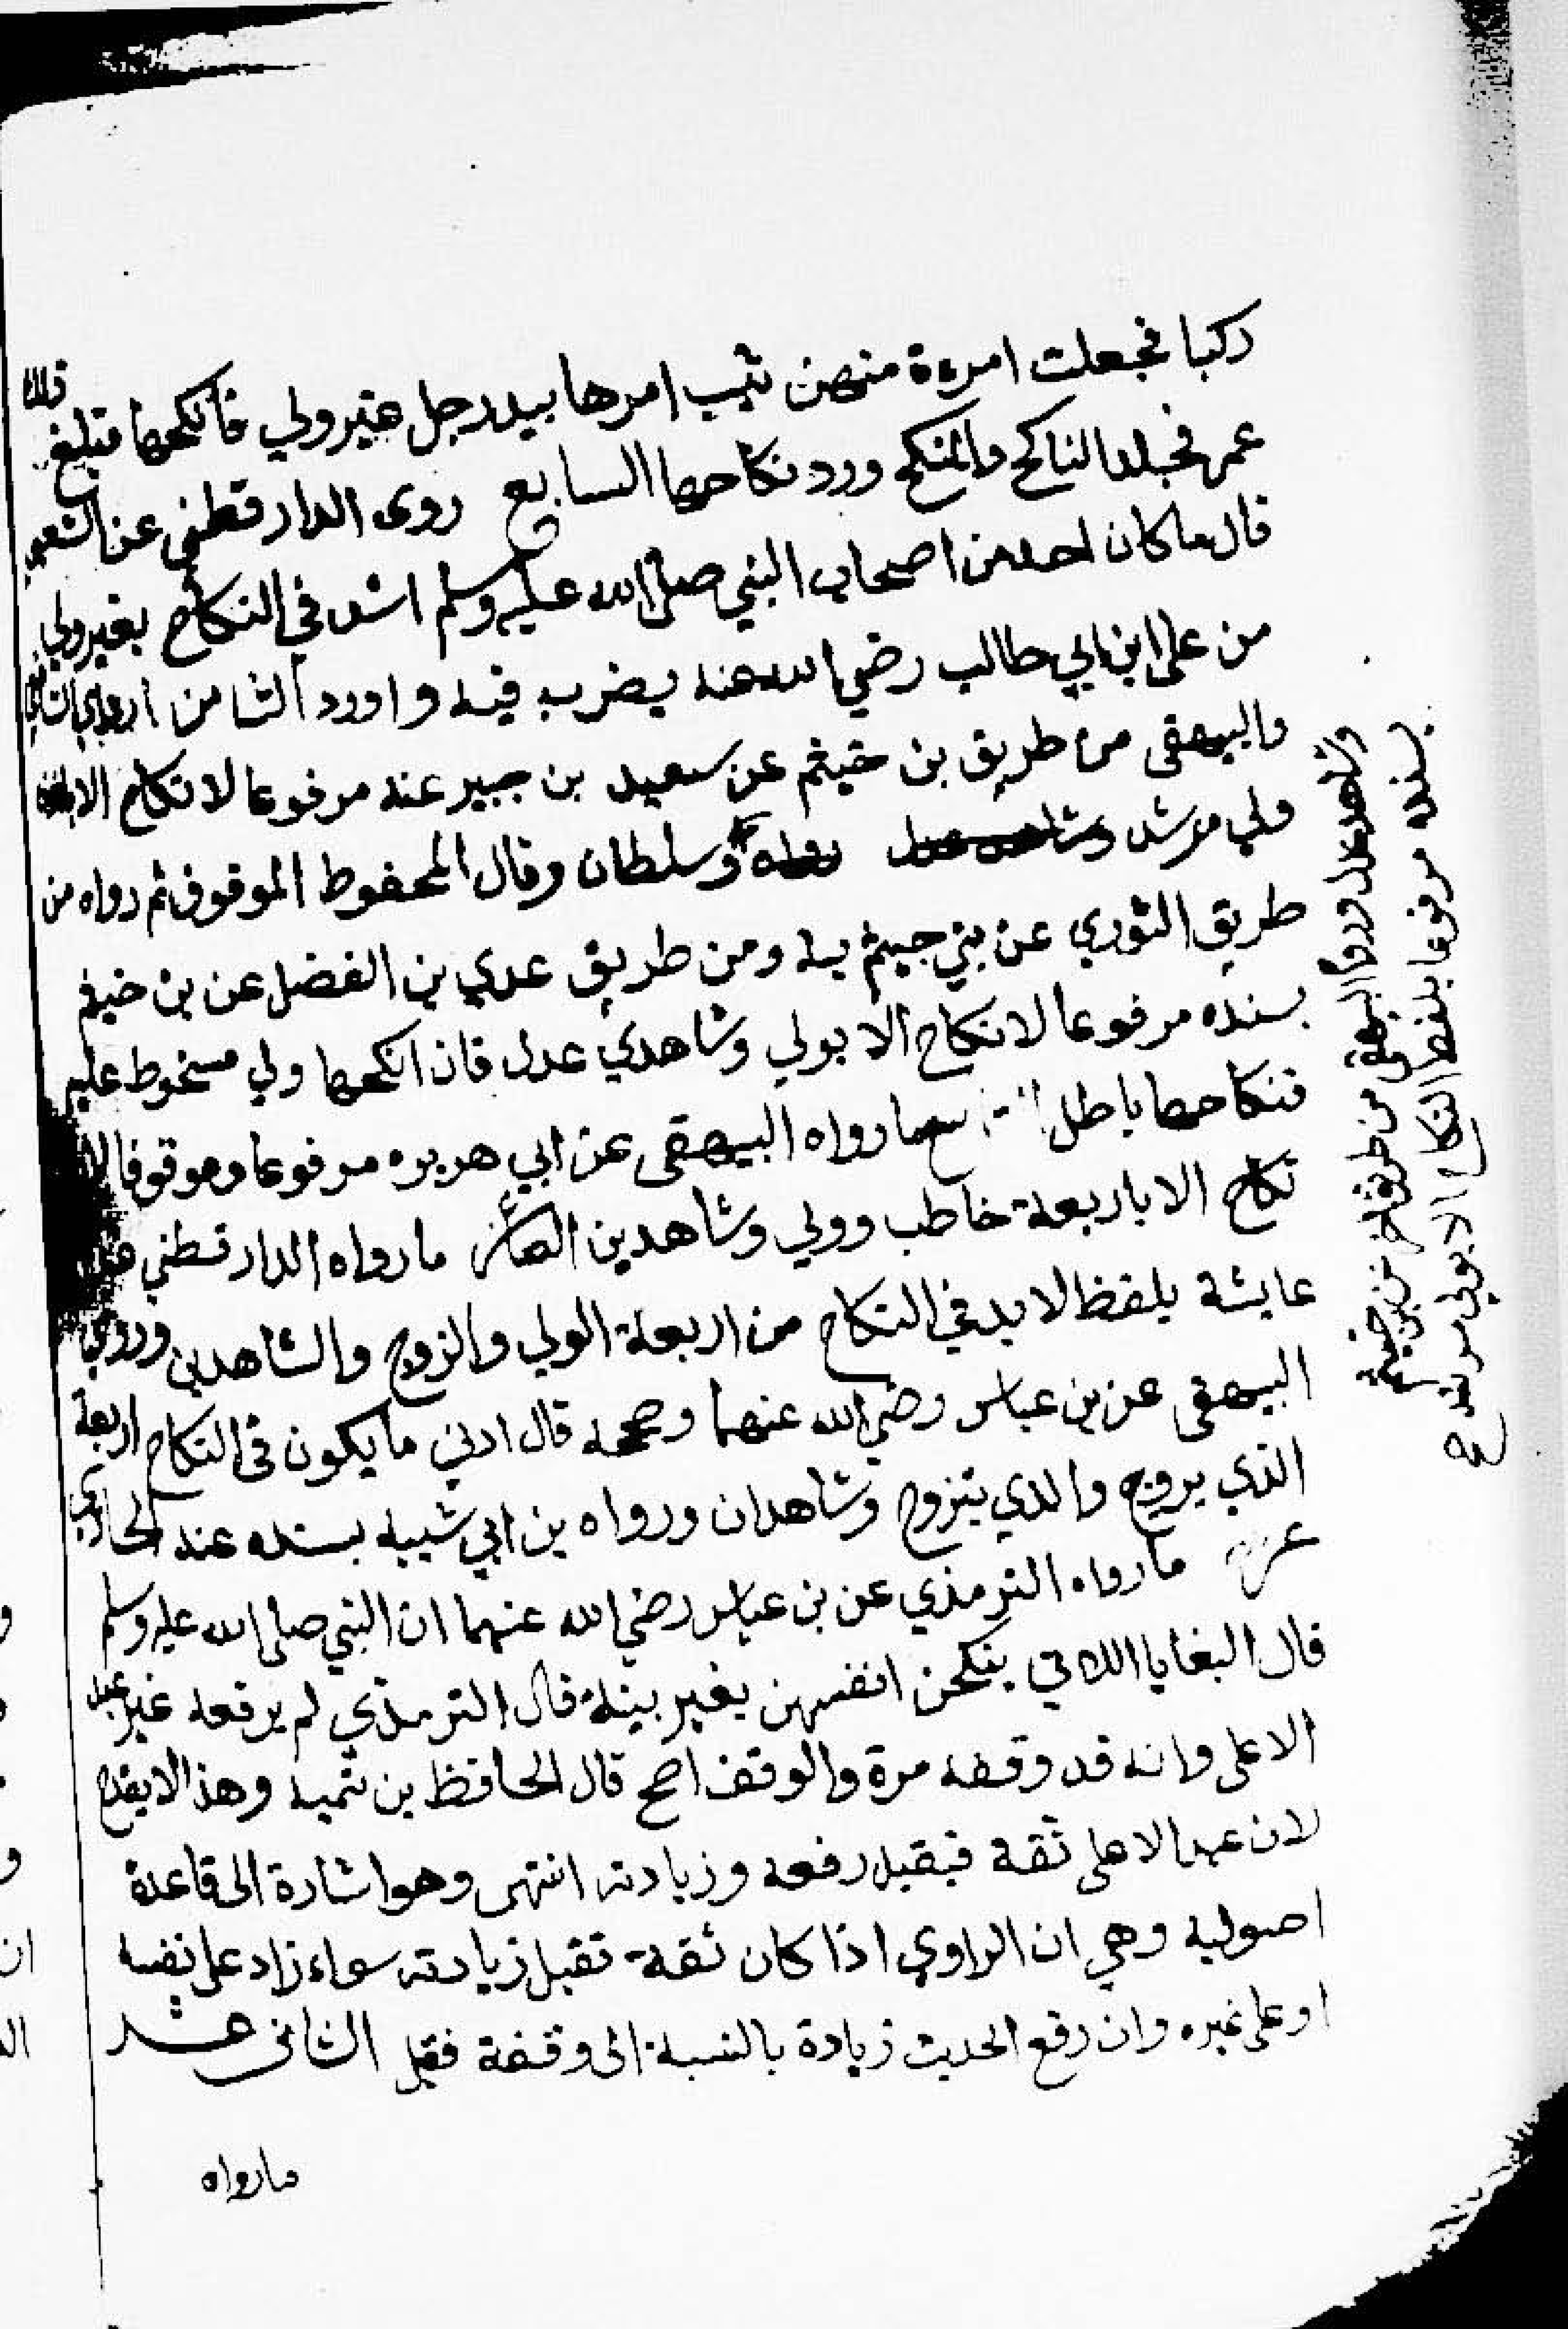 ركبا فجعلت امرءة منهن ثيب امرها بيد رجل غير ولي فانكحها فبلغ ذلك
عمر فجلد الناكح والمنكح ورد نكاحها السابع روى الدارقطني عن الشعبي
قال ما كان احد من اصحاب النبي صلى الله عليه وسلم اشد في النكاح بغير ولي
من على ابن ابي طالب رضي الله عنه يضرب فيه واورد الثامن
والبيهقى من طريق بن خيثم عن سعيد بن جبير عنه مرفوعا لا نكاح الا
ولي مرشد وسلطان وقال المحفوظ الموقوف ثم رواه من
طريق الثوري عن بني جيثم به ومن طريق عدي بن الفضل عن بن خيثم
بسنده مرفوعا لا نكاح الا بولي وشاهدي عدل فان انكحها ولي مسخوط عليه
فنكاحها باطل ما رواه البيهقى عن ابي هريره مرفوعا وموقوفا لا
نكاح الا باربعة خاطب وولي وشاهدين العاشر ما رواه الدارقطني عن
عايشة بلفظ لا بد في النكاح من اربعة الولي والزوج والشاهدين وروي
البيهقى عن بن عباس رضي الله عنهما وصححه قال ادني ما يكون في النكاح اربعة
الذي يروج والذي يتزوج وشاهدان ورواه بن ابي شيبه بسنده عنه الحادي
عشر ما رواه الترمذي عن بن عباس رضي الله عنهما ان النبي صلى الله عليه وسلم
قال البغايا اللاتي ينكحن انفسهن بغير بينة قال الترمذي لم يرفعه غير عبد
الاعلى وانه قد وقفه مرة والوقف اصح قال الحافظ بن تميه وهذا لا يقدح
لان عبد الاعلى ثقة فيقبل رفعه وزيادته انتهى وهو اشارة الى قاعدة
اصوليه وهي ان الراوي اذا كان ثقة تقبل زيادته سواء زاد على نفسه
او على غيره وان رفع الحديث زيادة بالنسبة الى وقفة فقبل الثانى عشر
ما رواه
وشاهد عدل وروا البيهقى من طريق اخر عن بن خيثم
بسنده مرفوعا بلفظ لا نكاح الا بولى مرشد صح